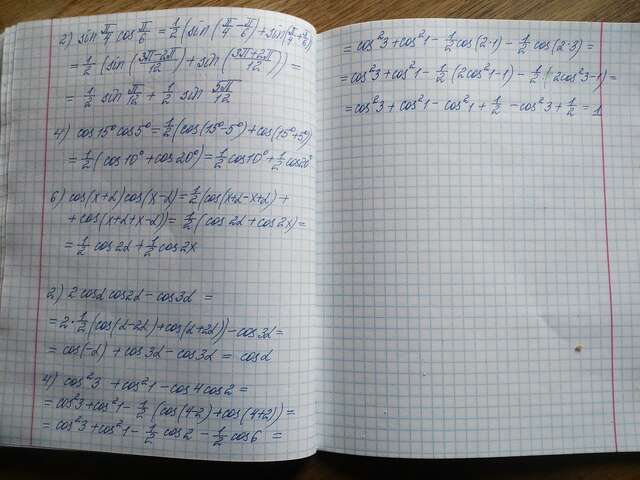 2) sin π/4 cos π/6 = 1/2 (sin (π/4 - π/6) + sin(π/4 + π/6))
= 1/2 (sin (3π-2π/12) + sin (3π+2π/12)) =
= 1/2 sin π/12 + 1/2 sin 5π/12
4) cos 15° cos 5° = 1/2 (cos (15°-5°) + cos (15°+5°))
= 1/2 (cos 10° + cos 20°) = 1/2 cos 10° + 1/2 cos 20°
6) cos(x+α) cos(x-α) = 1/2 (cos(x+α-x+α) +
+ cos(x+α+x-α)) = 1/2 (cos 2α + cos 2x) =
= 1/2 cos 2α + 1/2 cos 2x
2) 2 cosα cos2α - cos3α =
= 2 · 1/2 (cos(α-2α) + cos(α+2α)) - cos 3α =
= cos(-α) + cos 3α - cos 3α = cosα
4) cos²3 + cos²1 - cos 4 cos 2 =
= cos²3 + cos²1 - 1/2 (cos(4-2) + cos(4+2)) =
= cos²3 + cos²1 - 1/2 cos 2 - 1/2 cos 6 =
= cos²3 + cos²1 - 1/2 cos(2·1) - 1/2 cos(2·3) =
= cos²3 + cos²1 - 1/2 (2cos²1-1) - 1/2 (2cos²3-1) =
= cos²3 + cos²1 - cos²1 + 1/2 - cos²3 + 1/2 = 1